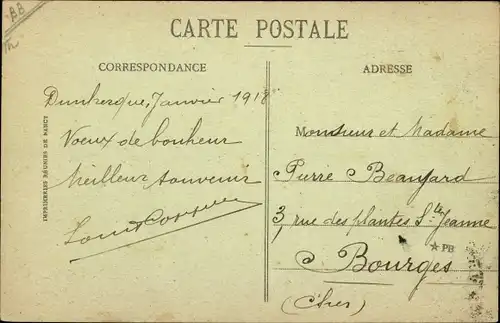 BB
CARTE POSTALE
CORRESPONDANCE
Dunkerque, Janvier 1918
Voeux de bonheur
Meilleur souvenir
ADRESSE
Monsieur et Madame
Pierre Beaujard
3, rue des plantes Ste Jeanne
Bourges
(Cher)
★PB
IMPRIMERIES RÉUNIES DE NANCY